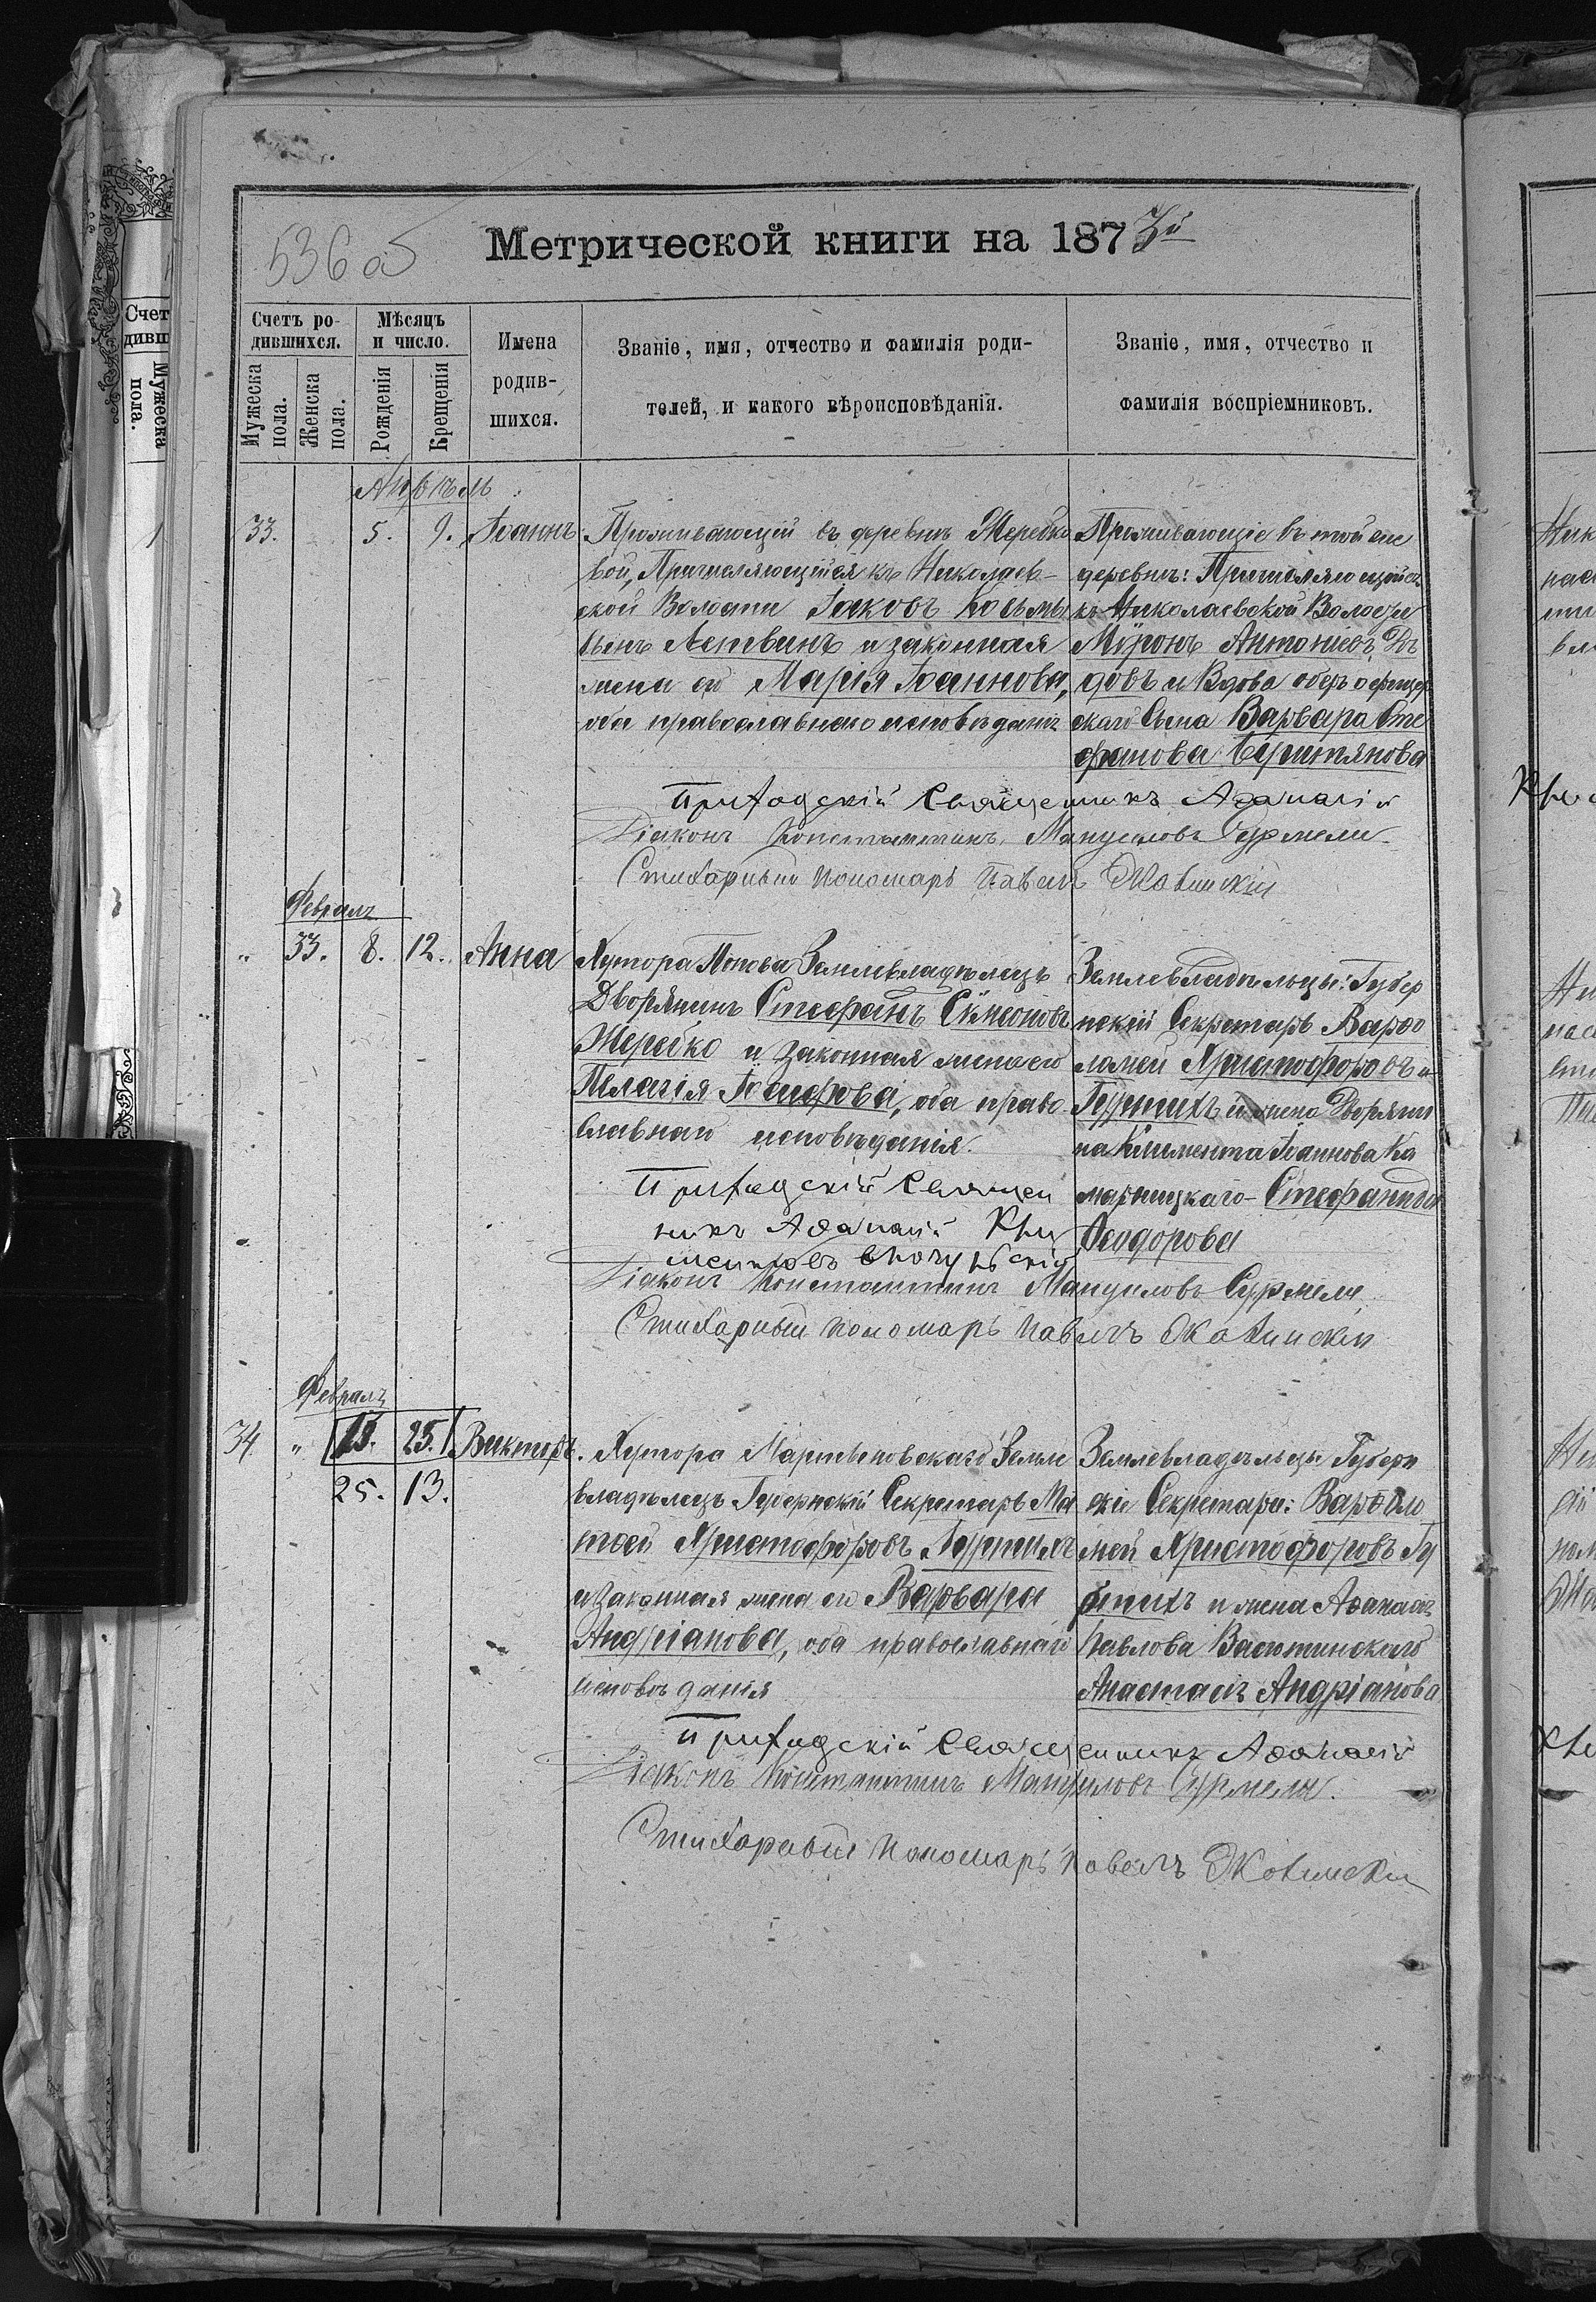 536 об
Метрической книги на 1873й
Счетъ ро-
дившихся.
Мѣсяцъ
и число.
Мужеска
пола.
Женска
пола.
Рожденія
Крещенія
Имена
родив-
шихся.
Званіе, имя, отчество и фамилія роди-
телей, и какого вѣроисповѣданія.
Званіе, имя, отчество и
фамилія воспріемниковъ.
Апрѣль
33. 5. 9. Іоаннъ
Проживающій въ деревнѣ Жеребко
вой, Причисляющійся къ Николаев-
ской Волости Іаковъ Косьмы
сынъ Летвинъ и законная
жена его Марія Іоаннова,
оба православнаго исповѣданія
Проживающіе въ той же
деревнѣ: Причисляющійся
къ Николаевской Волости
Мѵронъ Антоніевъ
и Вдова оберъ офицер
скаго Сына Варвара Сте
фанова
Приходскій Священникъ Аѳанасій
Діаконъ Константинъ Мануиловъ Сурмели
Стихарный пономарь Павелъ
Февраль
" 33. 8. 12. Анна
Хутора Попова Землевладѣлецъ
Дворянинъ Стефанъ Сѵмеоновъ
Жеребко и законная жена его
Пелагія Іосифова, оба право
славнаго исповѣданія.
Землевладѣльцы: Губер
нскій Секретарь Варѳо
ломей Христофоровъ
и жена Дворяни
на Климента Іоаннова Ка
марницкаго - Стефанида
Ѳеодорова
Приходскій Священ
никъ Аѳанасій
Діаконъ Константинъ Мануиловъ Сурмели
Стихарный пономарь Павелъ
Февраль
34. " 13. 25. Викторъ.
25. 13.
Хутора Мартыновскаго Земле
владѣлецъ Губернскій Секретарь Ма
тѳей Христофоровъ
и законная жена его Варвара
Андріанова, оба православнаго
исповѣданія
Землевладѣльцы Губерн
скіе Секретари: Варѳоло
мей Христофоровъ
и жена Аѳанасія
Павлова
Анастасія Андріанова
Приходскій Священникъ Аѳанасій
Діаконъ Константинъ Мануиловъ Сурмели.
Стихарный пономарь Павелъ